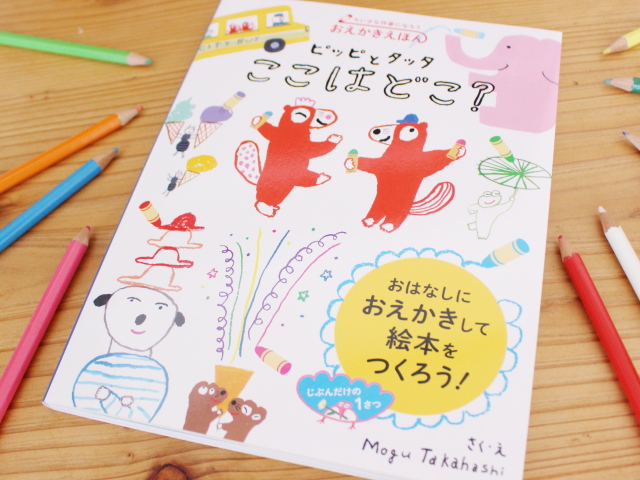 ちいさな作家になろう
おえかきえほん
ピッピとタッタ
ここはどこ?
おはなしに
おえかきして
絵本を
つくろう!
じぶんだけの
1さつ
さく・え
Mogu Takahashi